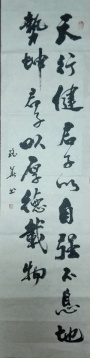 天行健君子以自强不息地
势坤君子以厚德載物